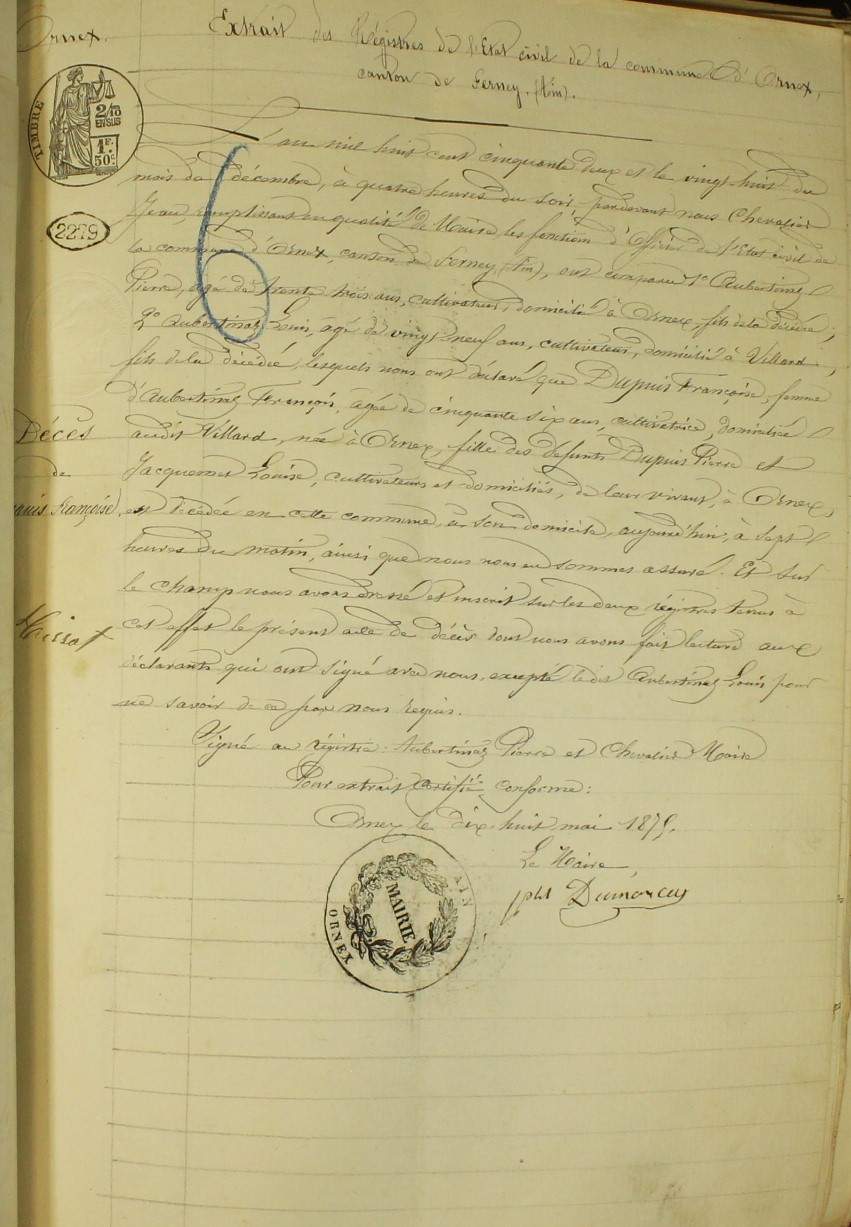 Ornex.
Extrait des Régistres de l'Etat civil de la commune d'Ornex,
canton de Ferney. (Ain).
TIMBRE
2/10
EN SUS
1F.
50c.
2279
6
L'an mil huit cent cinquante deux et le vingt huit du
mois de décembre, à quatre heures du soir, pardevant nous Chevalier
Jean, remplissant en qualité de Maire, les fonctions d'Officier de l'Etat civil de
la commune d'Ornex, canton de Ferney, (Ain), ont comparu 1° Aubertinaz
Pierre, agé de trente trois ans, cultivateur, domicilié à Ornex, fils de la décédée;
2° Aubertinaz Louis, agé de vingt neuf ans, cultivateur, domicilié à Villard,
fils de la décédée, lesquels nous ont déclaré que Dupuis Françoise, femme
d'Aubertinaz François, agée de cinquante six ans, cultivatrice, domiciliée
audit Villard, née à Ornex, fille des défunts Dupuis Pierre et
Jacquemet Louise, cultivateurs et domiciliés, de leur vivant, à Ornex,
est décédée en cette commune, à son domicile, aujourd'hui, à sept
heures du matin, ainsi que nous nous en sommes assuré. Et sur
le champ nous avons dressé et inscrit sur les deux régistres tenus à
cet effet le présent acte de décès dont nous avons fait lecture aux
déclarants qui ont signé avec nous, excepté ledit Aubertinaz Louis pour
ne savoir de ce par nous requis.
Décès
de
puis Françoise
Signé au régistre: Aubertinaz Pierre et Chevalier Maire
Pour extrait certifié conforme:
Ornex le dix huit mai 1875.
Le Maire,
Dumarcay
MAIRIE
ORNEX
AIN